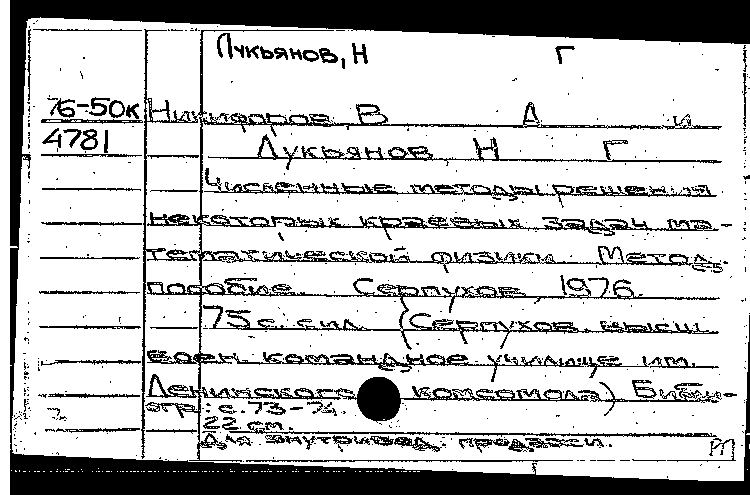 Лукьянов, Н Г
76-50к Никифоров, В А и
4781 Лукьянов Н Г
Численные методы решения
некоторых краевых задач ма-
тематической физики. Метод.
пособие. Серпухов, 1976.
75 с. с ил. (Серпухов. высш.
воен. командное училище им.
Ленинского комсомола) Библи-
огр.: с. 73-74.
22 см.
Для внутривед. продажи.